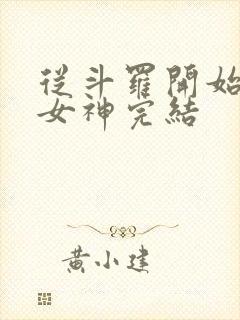 從斗羅開始
女神完結
黃小建